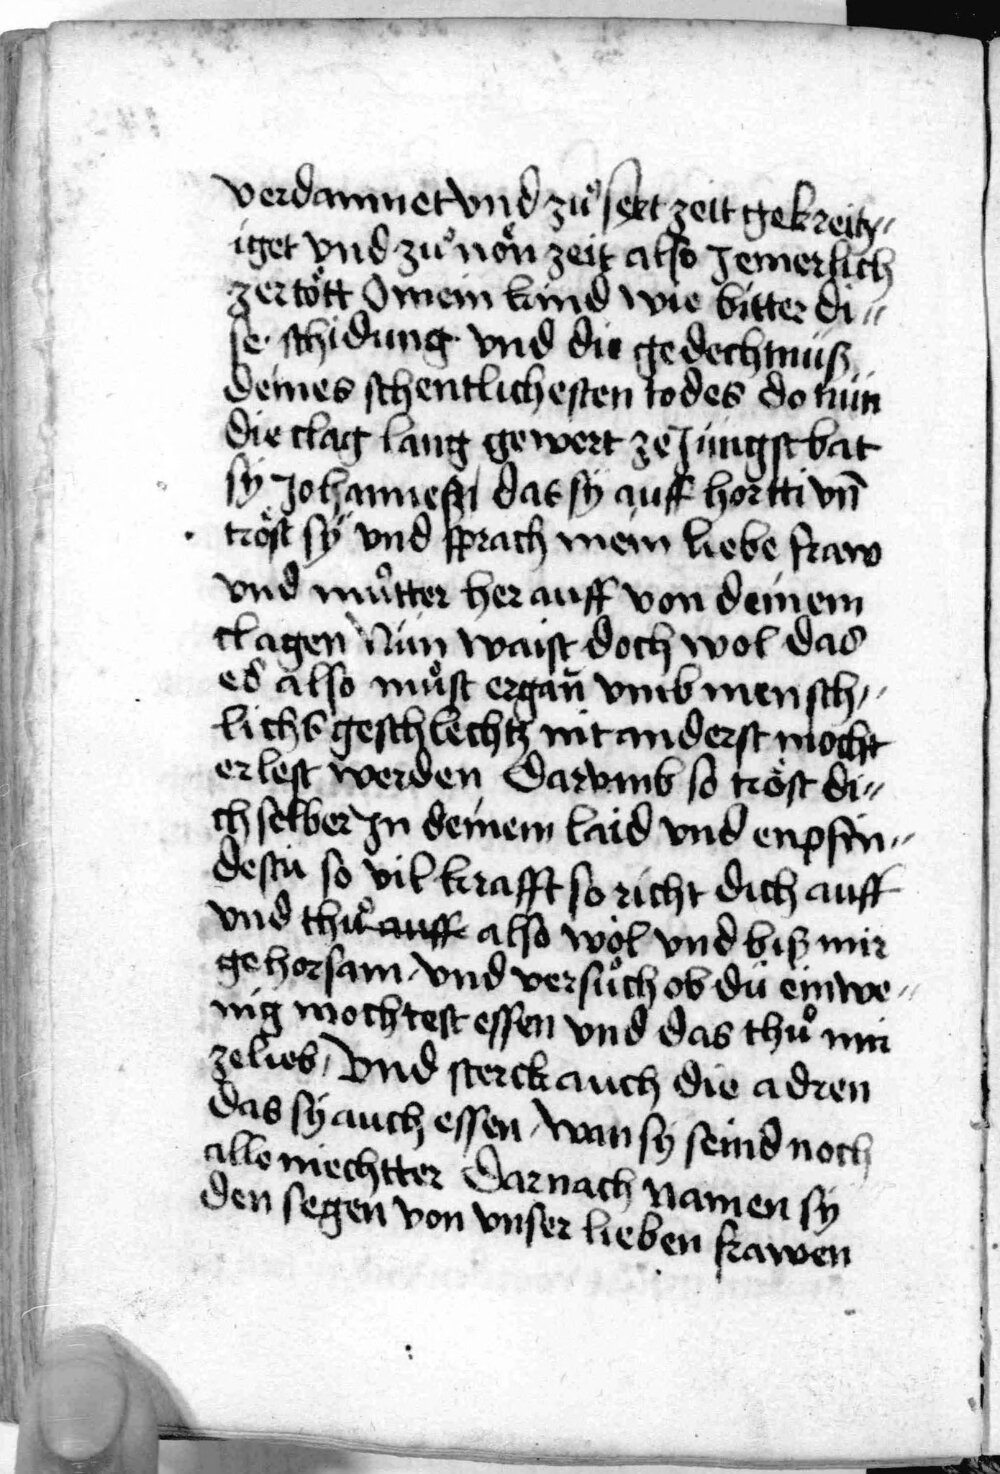 verdammet vnd zuͦ sext zeit gekreitz„
iget vnd zuͦ nön zeit also Jemerlich
zertött O mein kind wie bitter di„
se schidung vnd die gedechtnüß
deines schentlichesten todes do nün
die clag lang gewert ze Jüngst bat
sÿ Johannes das sÿ auff hortti vn̄
tröst sÿ vnd sprach mein liebe fraw
vnd muͦtter her auff von deinem
clagen Nün waist doch wol das
es also muͦst ergan̄ vmb mensch„
lichs geschlechtz nit anderst mocht
erlest werden Darvmb so tröst di„
ch selber Jn deinem laid vnd enpfin„
destu so vil krafft so richt dich auff
vnd thuͦ auff also wol vnd biß mir
gehorsam vnd versuͦch ob dü ein we„
nig mochtest essen vnd das thuͦ mir
ze lieb / Vnd sterck auch die adren
das sÿ auch essen / wan sÿ seind noch
alle niechtter Darnach namen sÿ
den segen von vnser lieben frawen